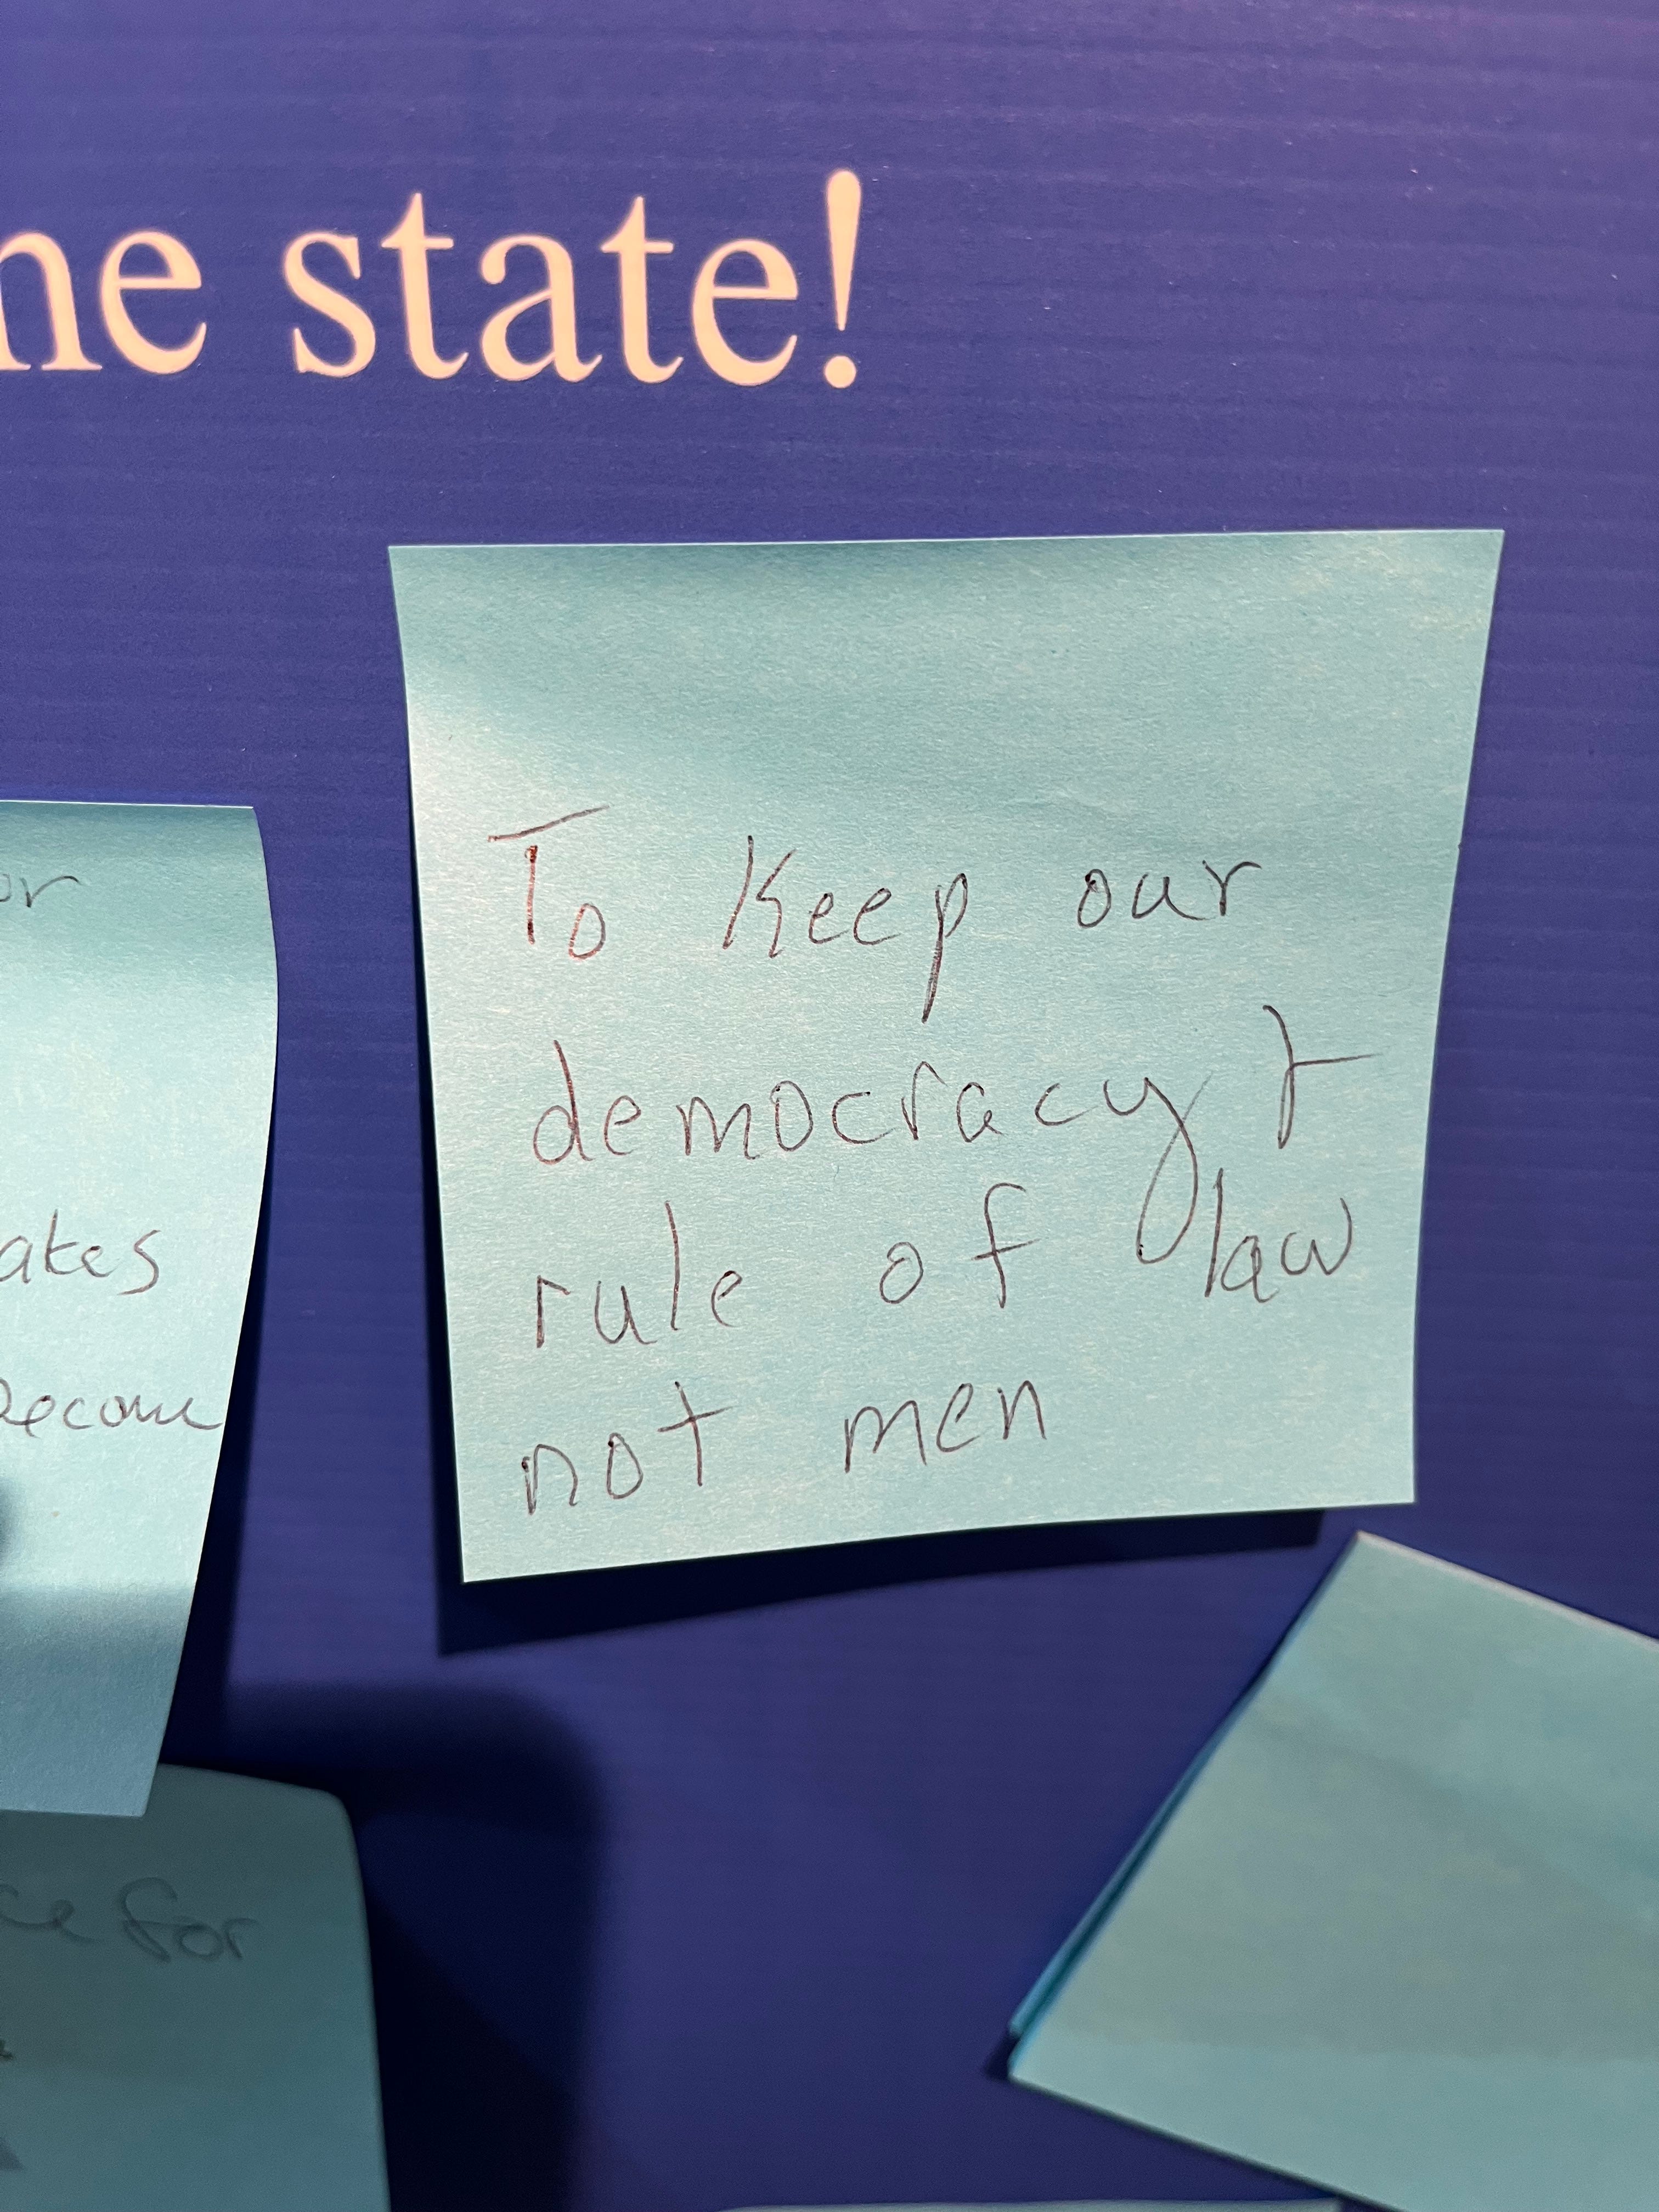 state!
To Keep our
democracy +
rule of law
not men
or
for